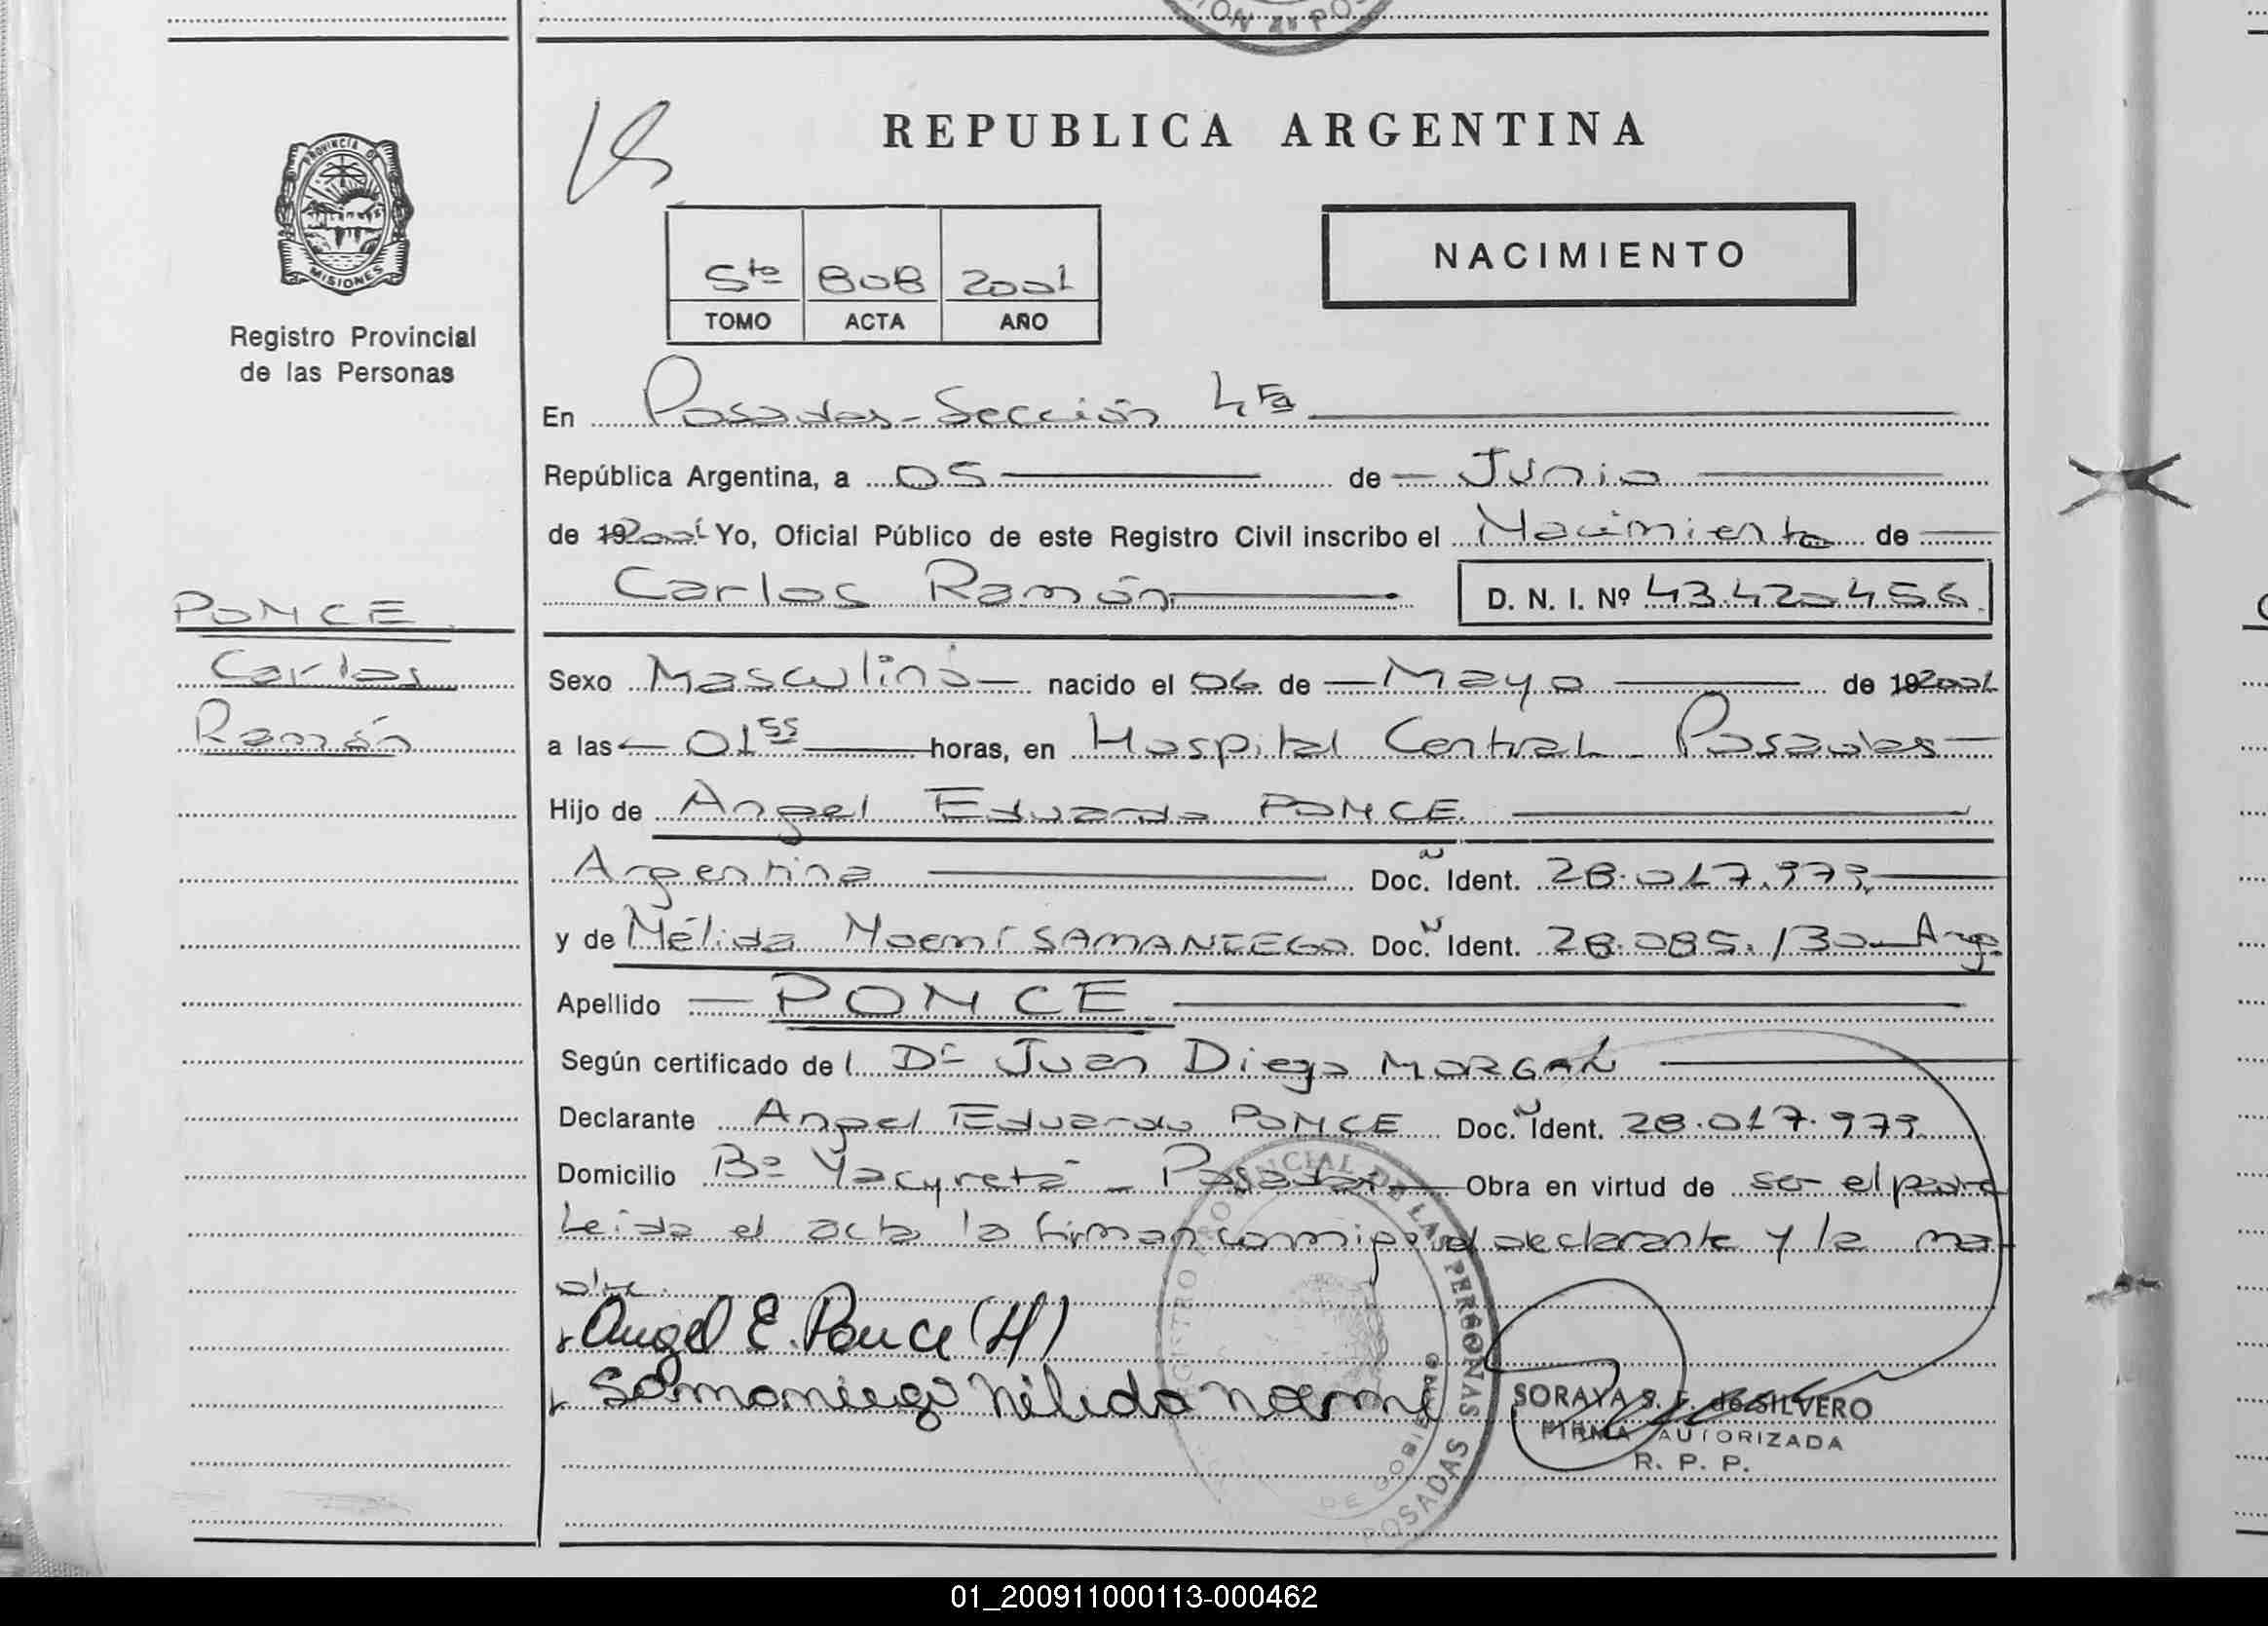 REPUBLICA ARGENTINA
PROVINCIA DE
MISIONES
Registro Provincial
de las Personas
5to 808 2001
TOMO ACTA AÑO
NACIMIENTO
En Posadas-Sección 4ta
República Argentina, a 05 de Junio
de 192001 Yo, Oficial Público de este Registro Civil inscribo el Nacimiento de
Carlos Ramón D. N. I. Nº 43.420.456
PONCE
Carlos
Ramón
Sexo Masculino nacido el 06 de Mayo de 192001
a las 01 55 horas, en Hospital Central - Posadas
Hijo de Angel Eduardo PONCE
Argentina Doc. Ident. 28.017.979
y de Nélida Noemí SAMANIEGO Doc. Ident. 28.085.130 Arg.
Apellido PONCE
Según certificado del Dr Juan Diego MORGAN
Declarante Angel Eduardo PONCE Doc. Ident. 28.017.979
Domicilio Bº Yacyretá - Posadas Obra en virtud de ser el padre
Leida el acta la firman conmigo el declarante y la ma-
dre.
Angel E. Ponce (H)
Samaniego Nélida Noemi
REGISTRO PROVINCIAL DE LAS PERSONAS
DE GOBIERNO
POSADAS
SORAYA S. F. de SILVERO
FIRMA AUTORIZADA
R. P. P.
01_200911000113-000462